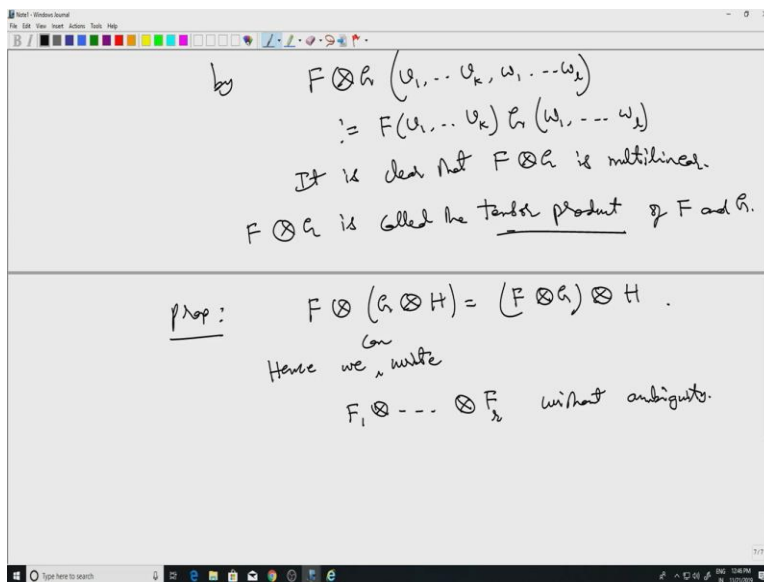 Note1 - Windows Journal
File Edit View Insert Actions Tools Help
by F ⊗ G (v₁, .. vₖ, ω₁ .. ωₗ)
:= F(v₁, .. vₖ) G (ω₁, --- ωₗ)
It is clear that F ⊗ G is multilinear.
F ⊗ G is called the tensor product of F and G.
Prop: F ⊗ (G ⊗ H) = (F ⊗ G) ⊗ H .
Hence we can write
F₁ ⊗ --- ⊗ Fᵣ without ambiguity.
7/7
Type here to search
ENG 12:46 PM
IN 11/21/2019